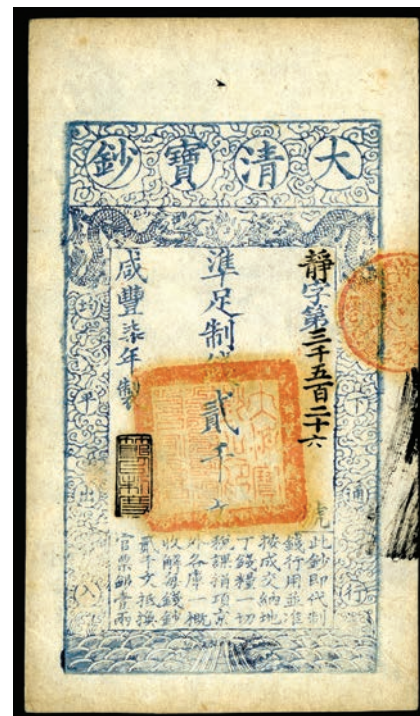 大清寶鈔
下通行
靜字第三千五百二十六
準足制錢貳千文
咸豐柒年製
均平出入
虎
此鈔即代制
錢行用並准
按成交納地
丁錢糧一切
稅課捐項京
外各庫一概
收解每錢鈔
貳千文抵換
官票銀壹兩